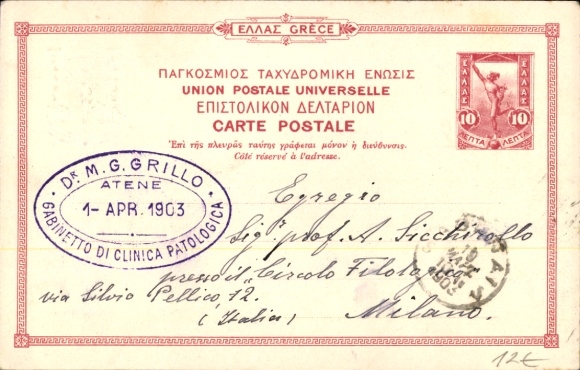 ΕΛΛΑΣ GRÈCE
ΠΑΓΚΟΣΜΙΟΣ ΤΑΧΥΔΡΟΜΙΚΗ ΕΝΩΣΙΣ
UNION POSTALE UNIVERSELLE
ΕΠΙΣΤΟΛΙΚΟΝ ΔΕΛΤΑΡΙΟΝ
CARTE POSTALE
Ἐπὶ τῆς πλευρᾶς ταύτης γράφεται μόνον ἡ διεύθυνσις.
Côté réservé à l'adresse.
ΕΛΛΑΣ ΕΛΛΑΣ
10 10
ΛΕΠΤΑ ΛΕΠΤΑ
DR. M. G. GRILLO
ATENE
1- APR. 1903
GABINETTO DI CLINICA PATOLOGICA
Egregio
Sig. prof. A. Sicchirollo
presso il „Circolo Filologico"
via Silvio Pellico, 12.
(Italia) Milano.
1903
12€